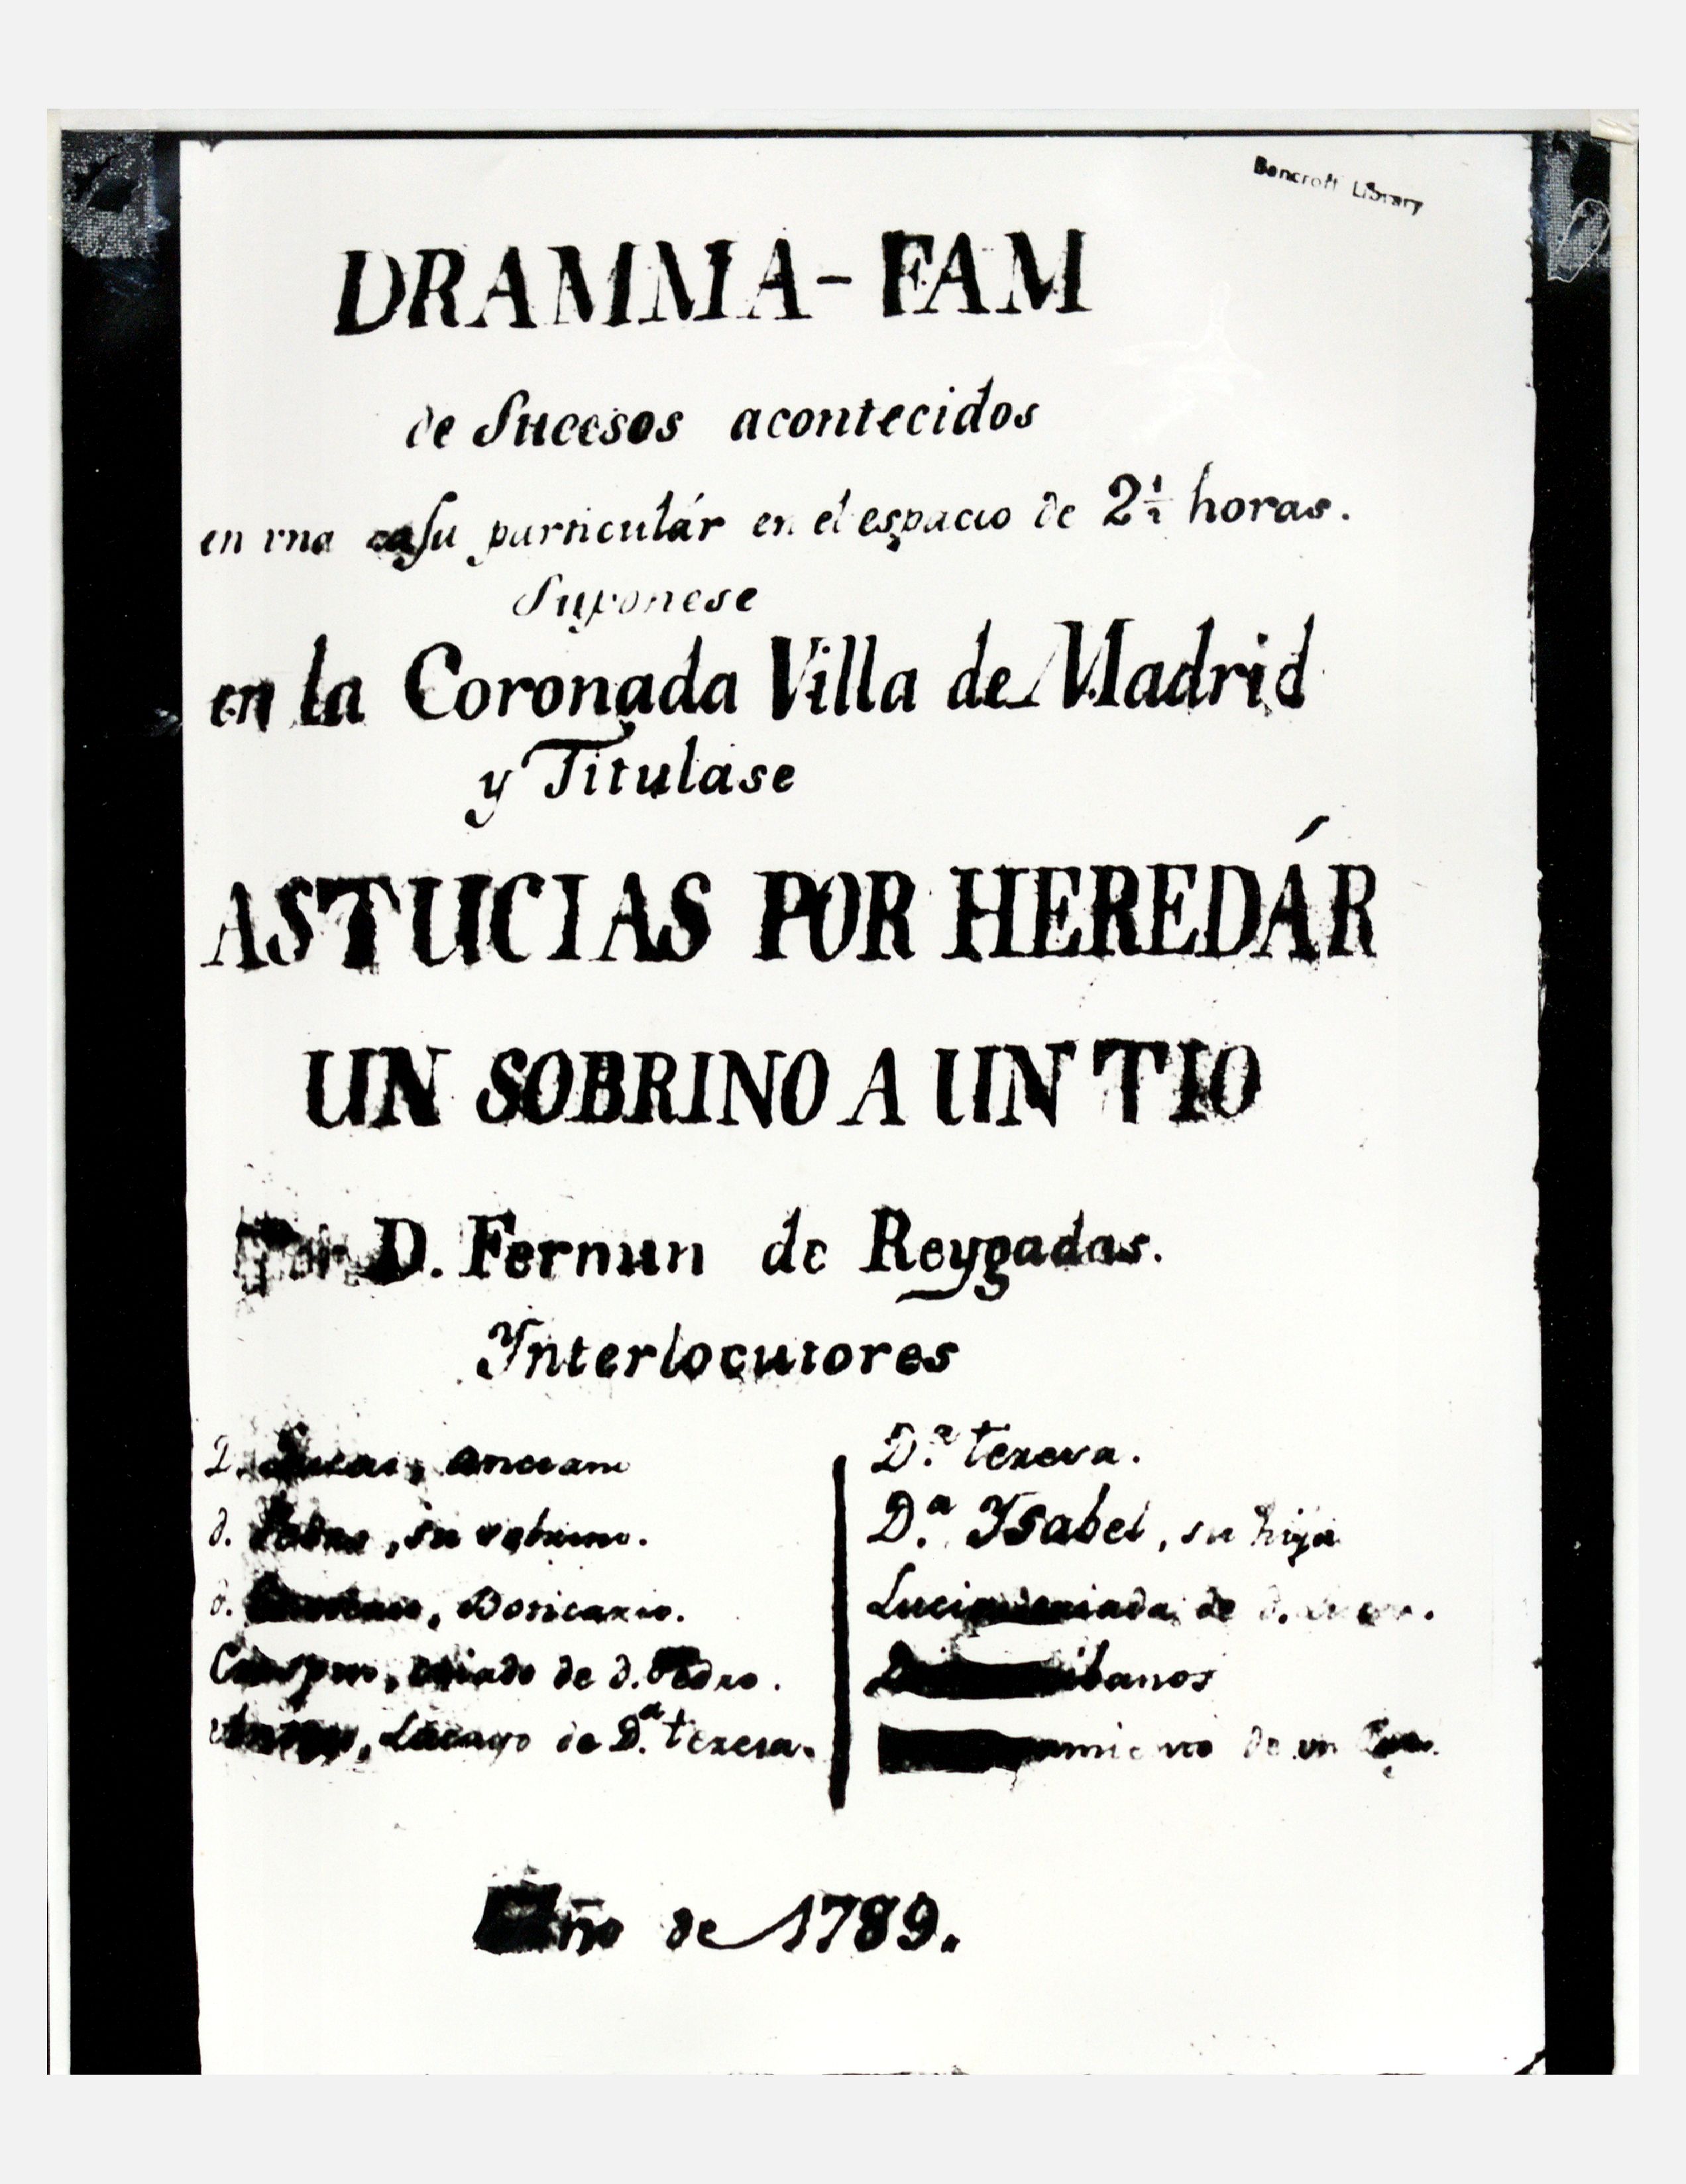 Bancroft Library
DRAMMA-FAM
de Sucesos acontecidos
en vna casa particulár en el espacio de 2½ horas.
Suponese
en la Coronada Villa de Madrid
y Titulase
ASTUCIAS POR HEREDÁR
UN SOBRINO A UN TIO
por D. Fernan de Reygadas.
Ynterlocutores
D. Lucas, anciano
d. Pedro, su sobrino.
d. Boticario.
Crispin, criado de d. Pedro.
Lacayo de D.ª tereza.
D.ª tereza.
D.ª Ysabel, su hija
Lucia criada de d.
de un
Año de 1789.